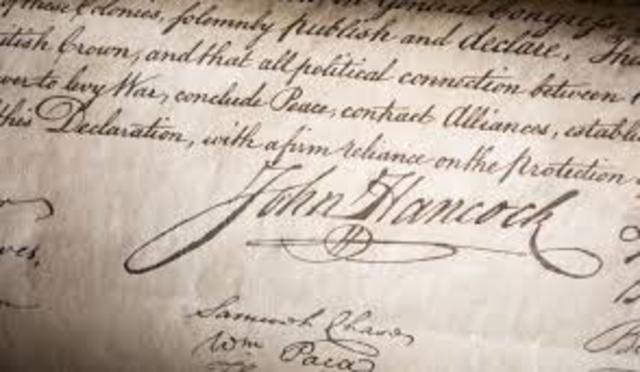 in General Congress
of these Colonies, solemnly publish and declare, Tha
itish Crown, and that all political connection between
wer to levy War, conclude Peace, contract Alliances, establi
this Declaration, with a firm reliance on the protection
John Hancock
ves,
Samuel Chase
Wm Paca